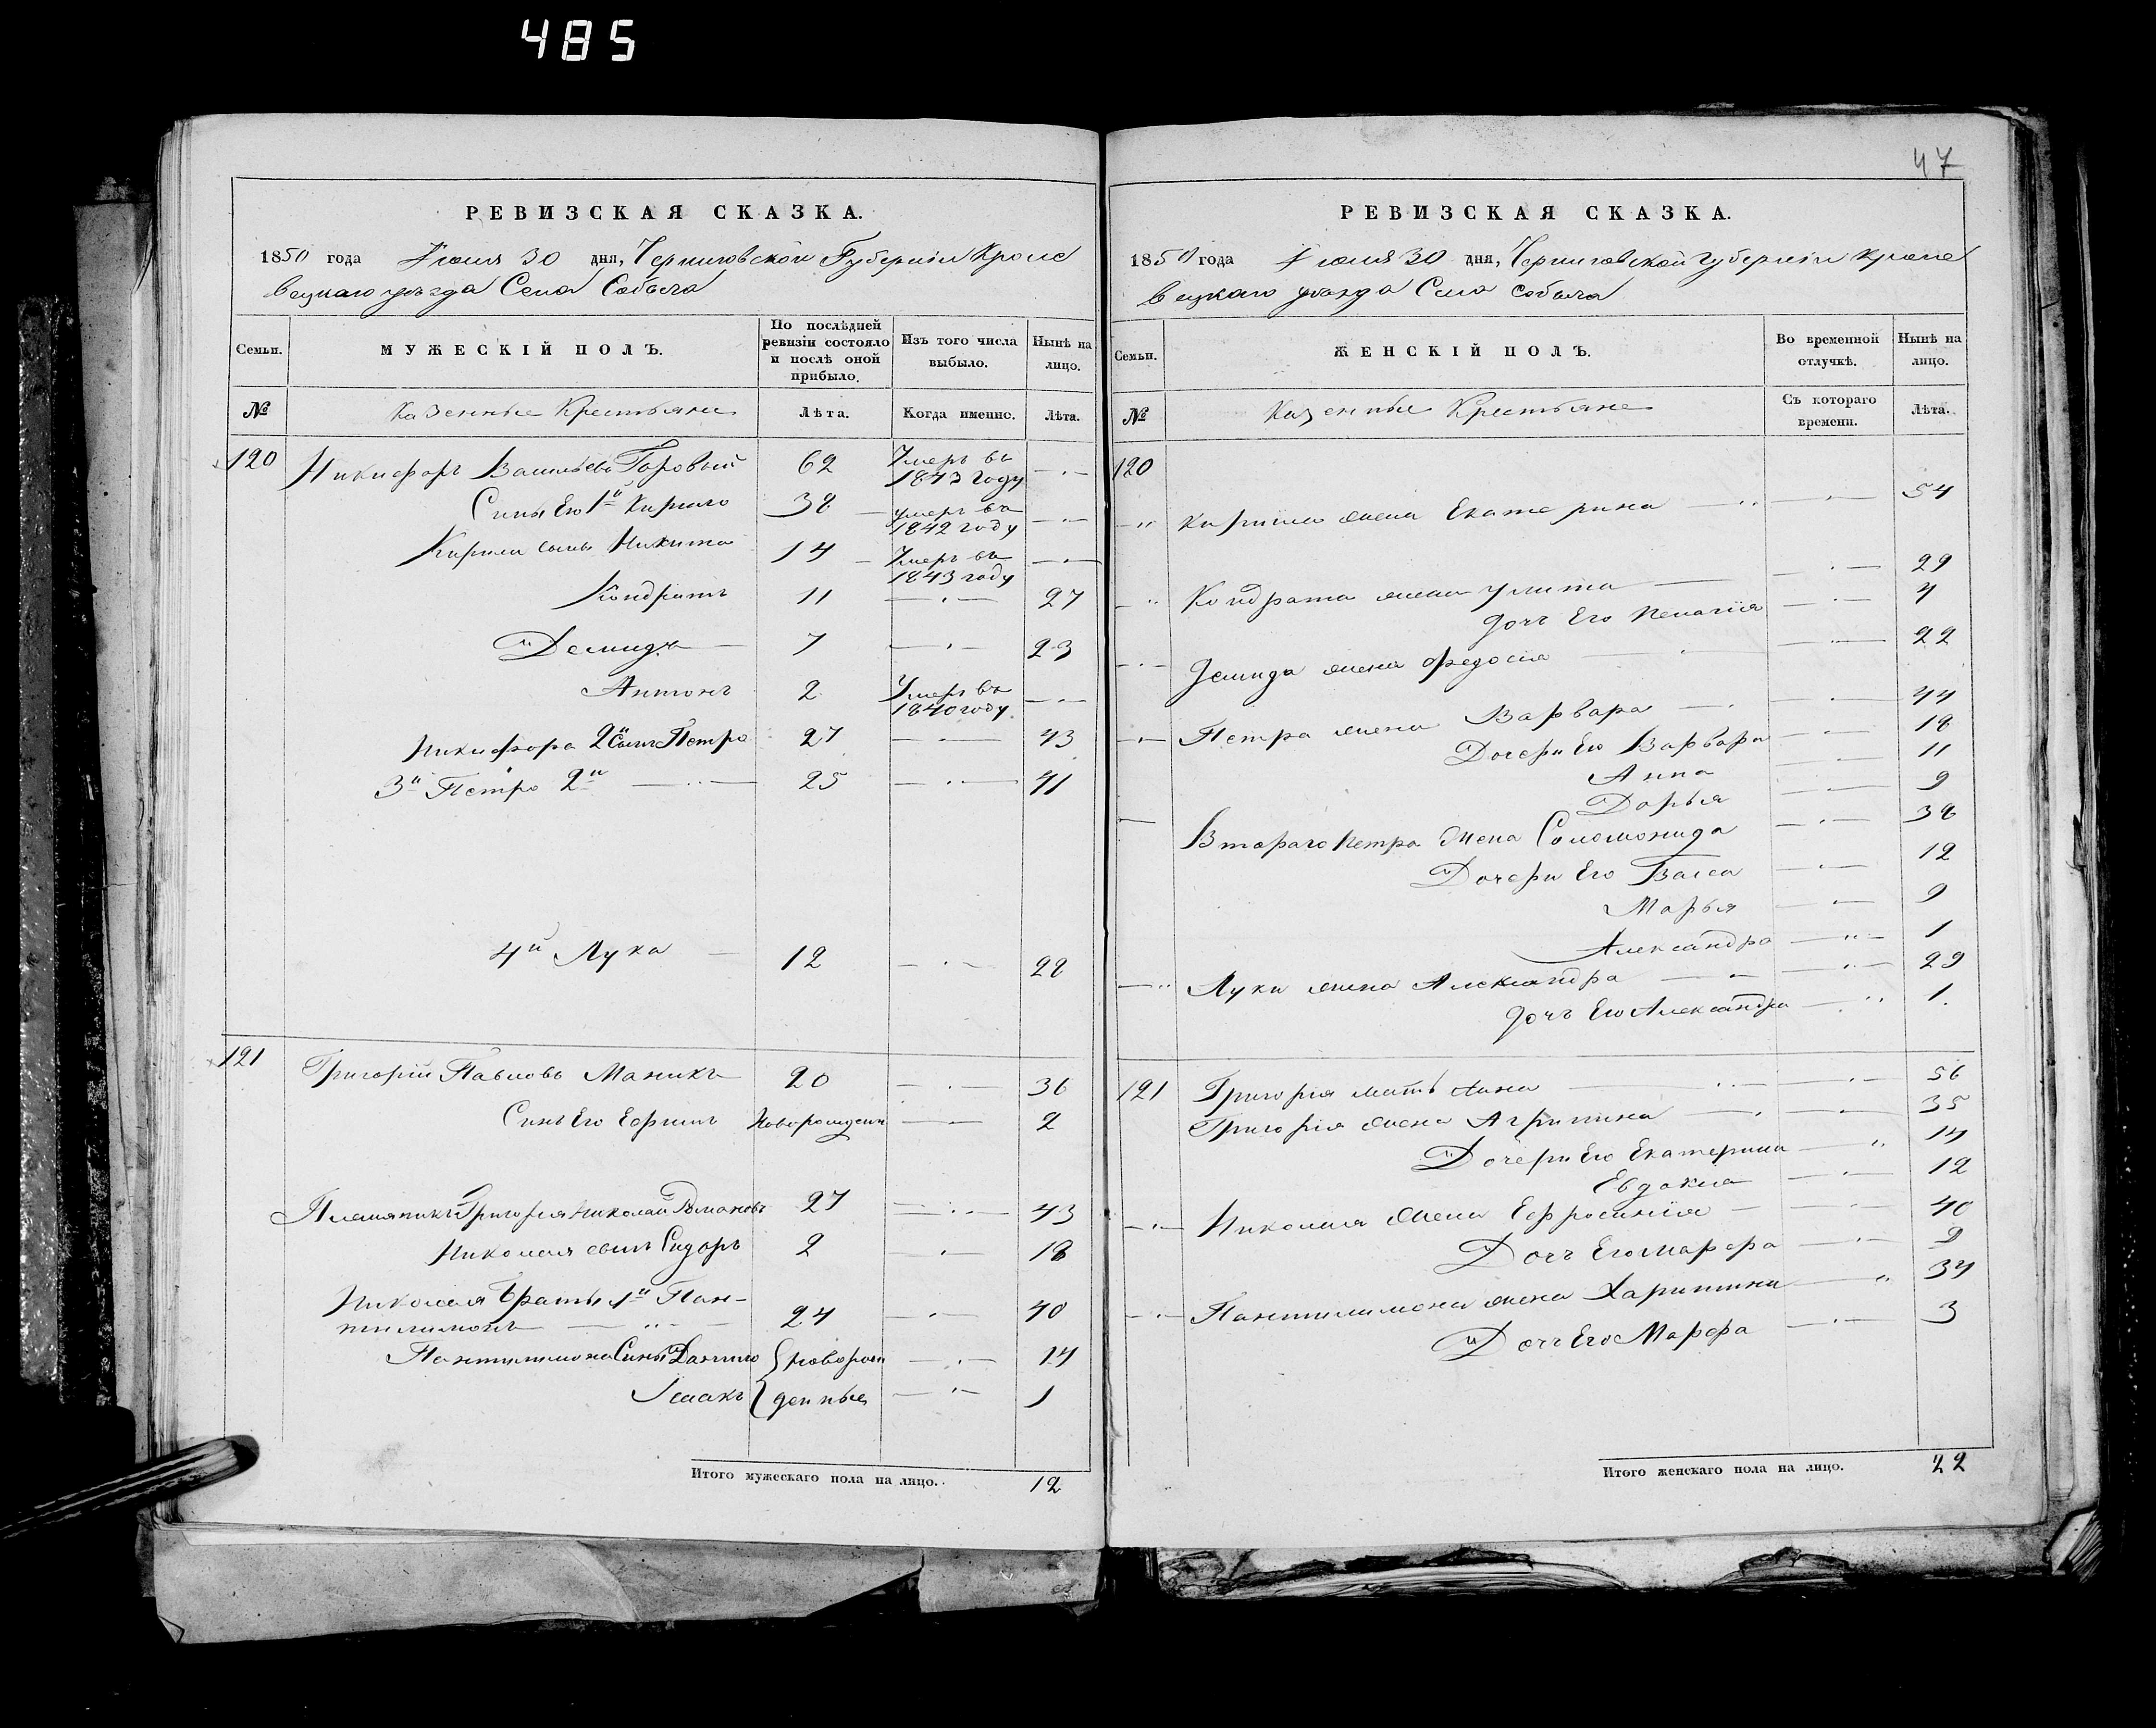 485
РЕВИЗСКАЯ СКАЗКА.
1850 года Июня 30 дня, Черниговской Губернiи Кроле
вецкаго уѣзда Села Собыча
Семьи. МУЖЕСКIЙ ПОЛЪ. По послѣдней ревизiи состояло и послѣ оной прибыло. Изъ того числа выбыло. Нынѣ на лицо.
№ Казенные Крестьяне Лѣта. Когда именно. Лѣта.
120 Никифоръ Васильевъ Горовый 62 Умеръ въ 1843 году
Сины Его 1й Кирило 38 умеръ въ 1842 году
Кирила сыны Никита 14 Умеръ въ 1843 году
Кондратъ 11 27
Демидъ 7 23
Антонъ 2 Умеръ въ 1840 году
Никифора 2й Сынъ Петро 27 43
3й Петро 2й 25 41
4й Лука 12 28
121 Григорiй Павловъ Маникъ 20 36
Синъ Его Ефримъ Новорожден 2
Племяникъ Григорiя Николай Романовъ 27 43
Николая сынъ Сидоръ 2 18
Николая Браты 1й Пан-
тилимонъ 24 40
Пантилимона Сины Данило новорож 14
Исаакъ денные 1
Итого мужескаго пола на лицо. 12
47
РЕВИЗСКАЯ СКАЗКА.
1850 года Июня 30 дня, Черниговской Губернiи Кроле
вецкаго уѣзда Села Собыча
Семьи. ЖЕНСКIЙ ПОЛЪ. Во временной отлучкѣ. Нынѣ на лицо.
№ Казенные Крестьяне Съ котораго времени. Лѣта.
120
Кирила жена Екатерина 54
Кондрата жена Улита 29
дочъ Его Пелагiя 4
Демида жена Федосiя 22
Петра жена Варвара 44
Дочери Его Варвара 18
Анна 11
Дарья 9
Втораго Петра Жена Соломонида 38
Дочери Его Васса 12
Марья 9
Александра 1
Луки жена Александра 29
дочъ Его Александра 1
121 Григорiя мать Анна 56
Григорiя жена Агрипина 35
Дочери Его Екатерина 14
Евдокия 12
Николая Жена Ефросинiя 40
Дочъ Его Марфа 9
Пантилимона жена Харитина 34
Дочъ Его Марфа 3
Итого женскаго пола на лицо. 22